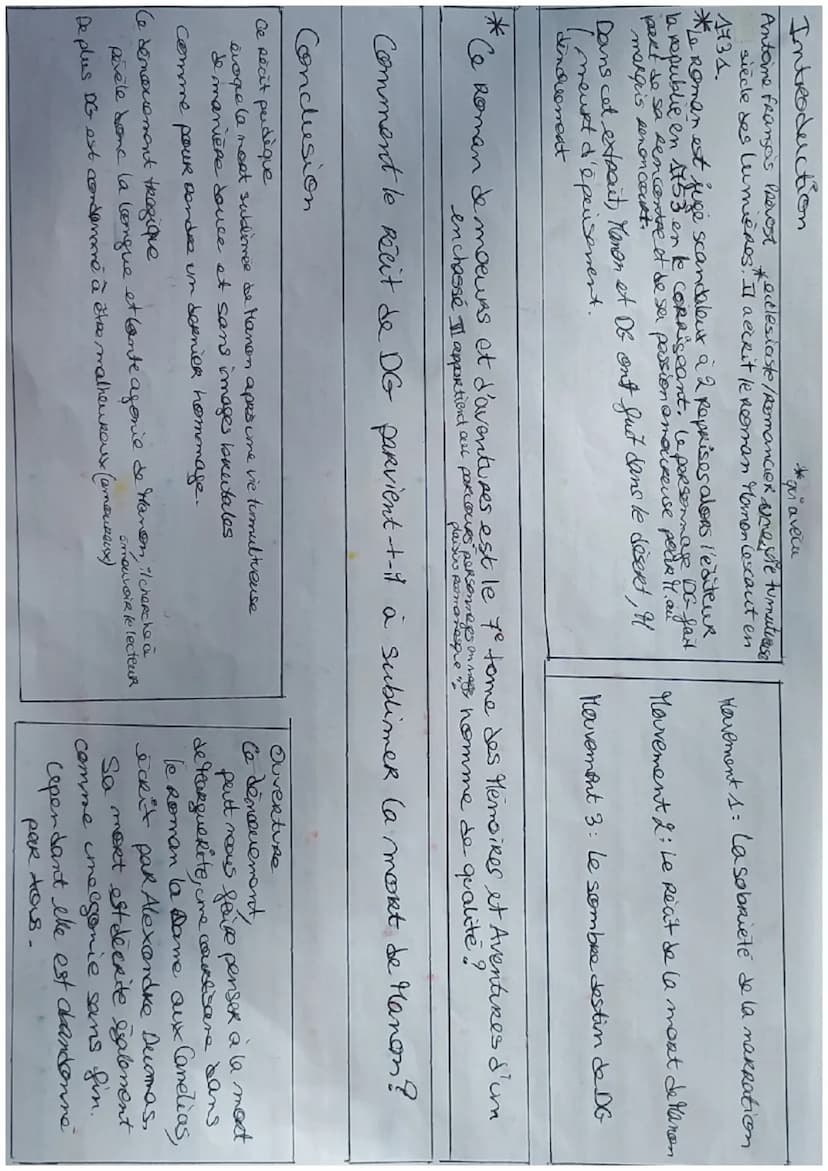 Introduction
* qui a vécu
Antoine François Prévost * ecclésiaste/romancier une vie tumultueuse
siècle des lumières. Il a écrit le roman Manon Lescaut en
1731.
* Le roman est jugé scandaleux à 2 reprises alors l'éditeur
la republie en 1753 en le corrigeant. Le personnage DG fait
part de sa rencontre et de sa passion amoureuse pour M. au
marquis renoncourt.
Dans cet extrait, Manon et DG ont fuit dans le désert, M
( meurt d'épuisement.
dénouement
Mouvement 1 : La sobriété de la narration
Mouvement 2 : Le récit de la mort de Manon
Mouvement 3 : Le sombre destin de DG
* Ce roman de moeurs et d'aventures est le 7e tome des Mémoires et Aventures d'un
enchassé Il appartient au parcours "personnages en marge homme de qualité ?
plaisirs romanesque".
Comment le récit de DG parvient-t-il à sublimer la mort de Manon ?
Conclusion
Ce récit pudique
évoque la mort sublimée de Manon après une vie tumultueuse
de manière douce et sans images brutales
comme pour rendre un dernier hommage.
Ce dénouement tragique
révèle donc la longue et lente agonie de Manon, il cherche à
émouvoir le lecteur
De plus DG est condamné à être malheureux (amoureux)
Ouverture
Ce dénouement,
peut nous faire penser à la mort
de Marguerite, une courtisane dans
le roman la Dame aux Camélias,
écrit par Alexandre Dumas.
Sa mort est décrite également
comme une agonie sans fin.
Cependant elle est abandonné
par tous.